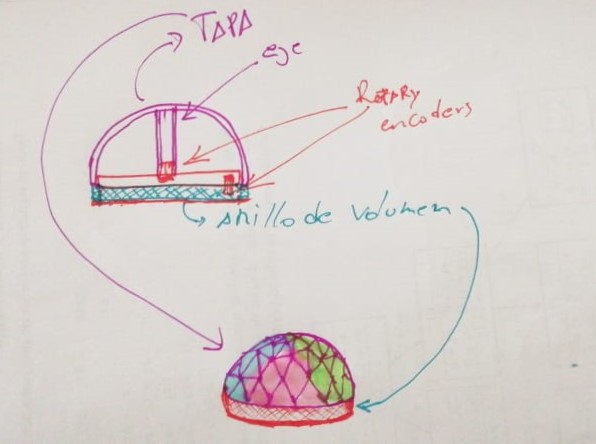 TAPA
eje
Rotary
encoders
Anillo de Volumen